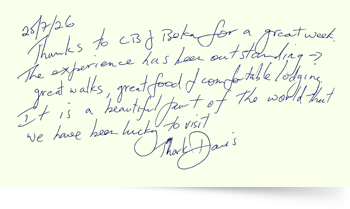 25/7/26
Thanks to CB & Beka for a great week.
The experience has been outstanding →
great walks, great food & comfortable lodging
It is a beautiful part of the world that
we have been lucky to visit
Mark Davis